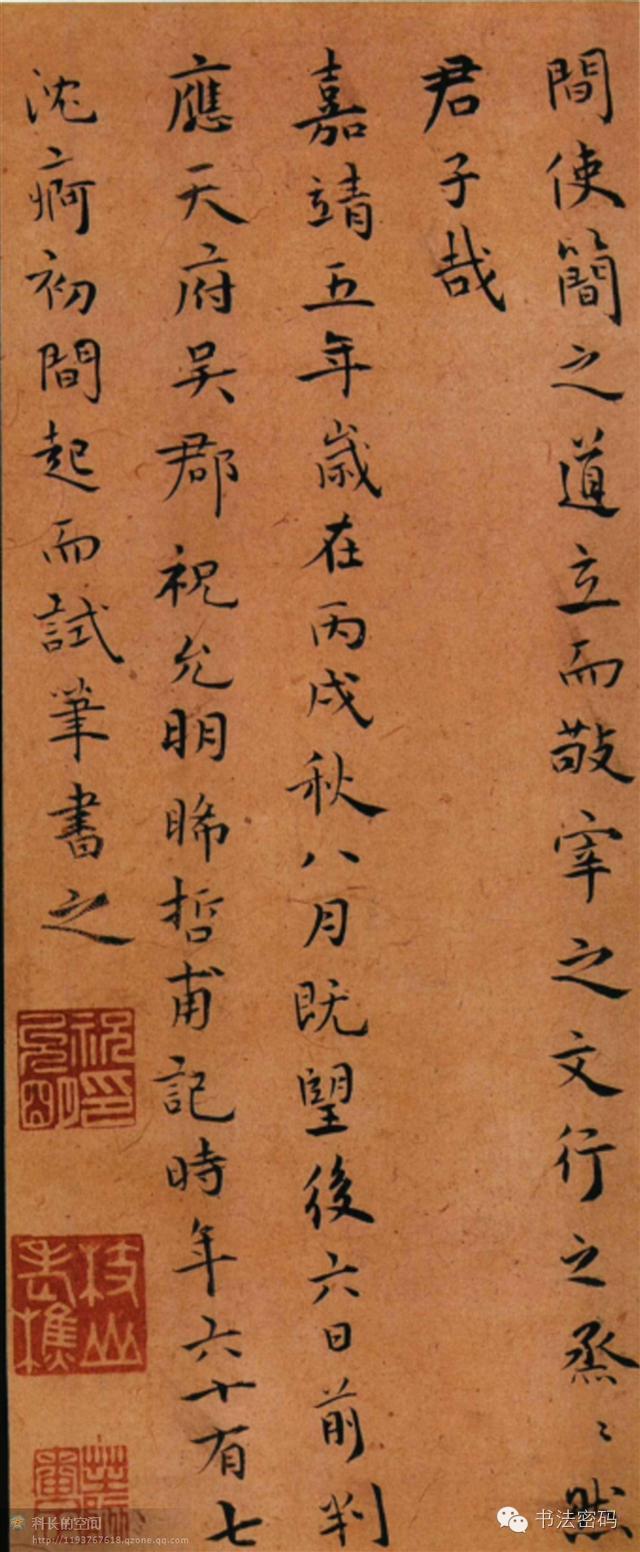 間使簡之道立而敬宰之文行之烝〻然
君子哉
嘉靖五年歲在丙戌秋八月既望後六日前判
應天府吳郡祝允明晞哲甫記時年六十有七
沈痾初間起而試筆書之
祝印允明
枝山老樵
科长的空间
http://1193767618.qzone.qq.com
书法密码